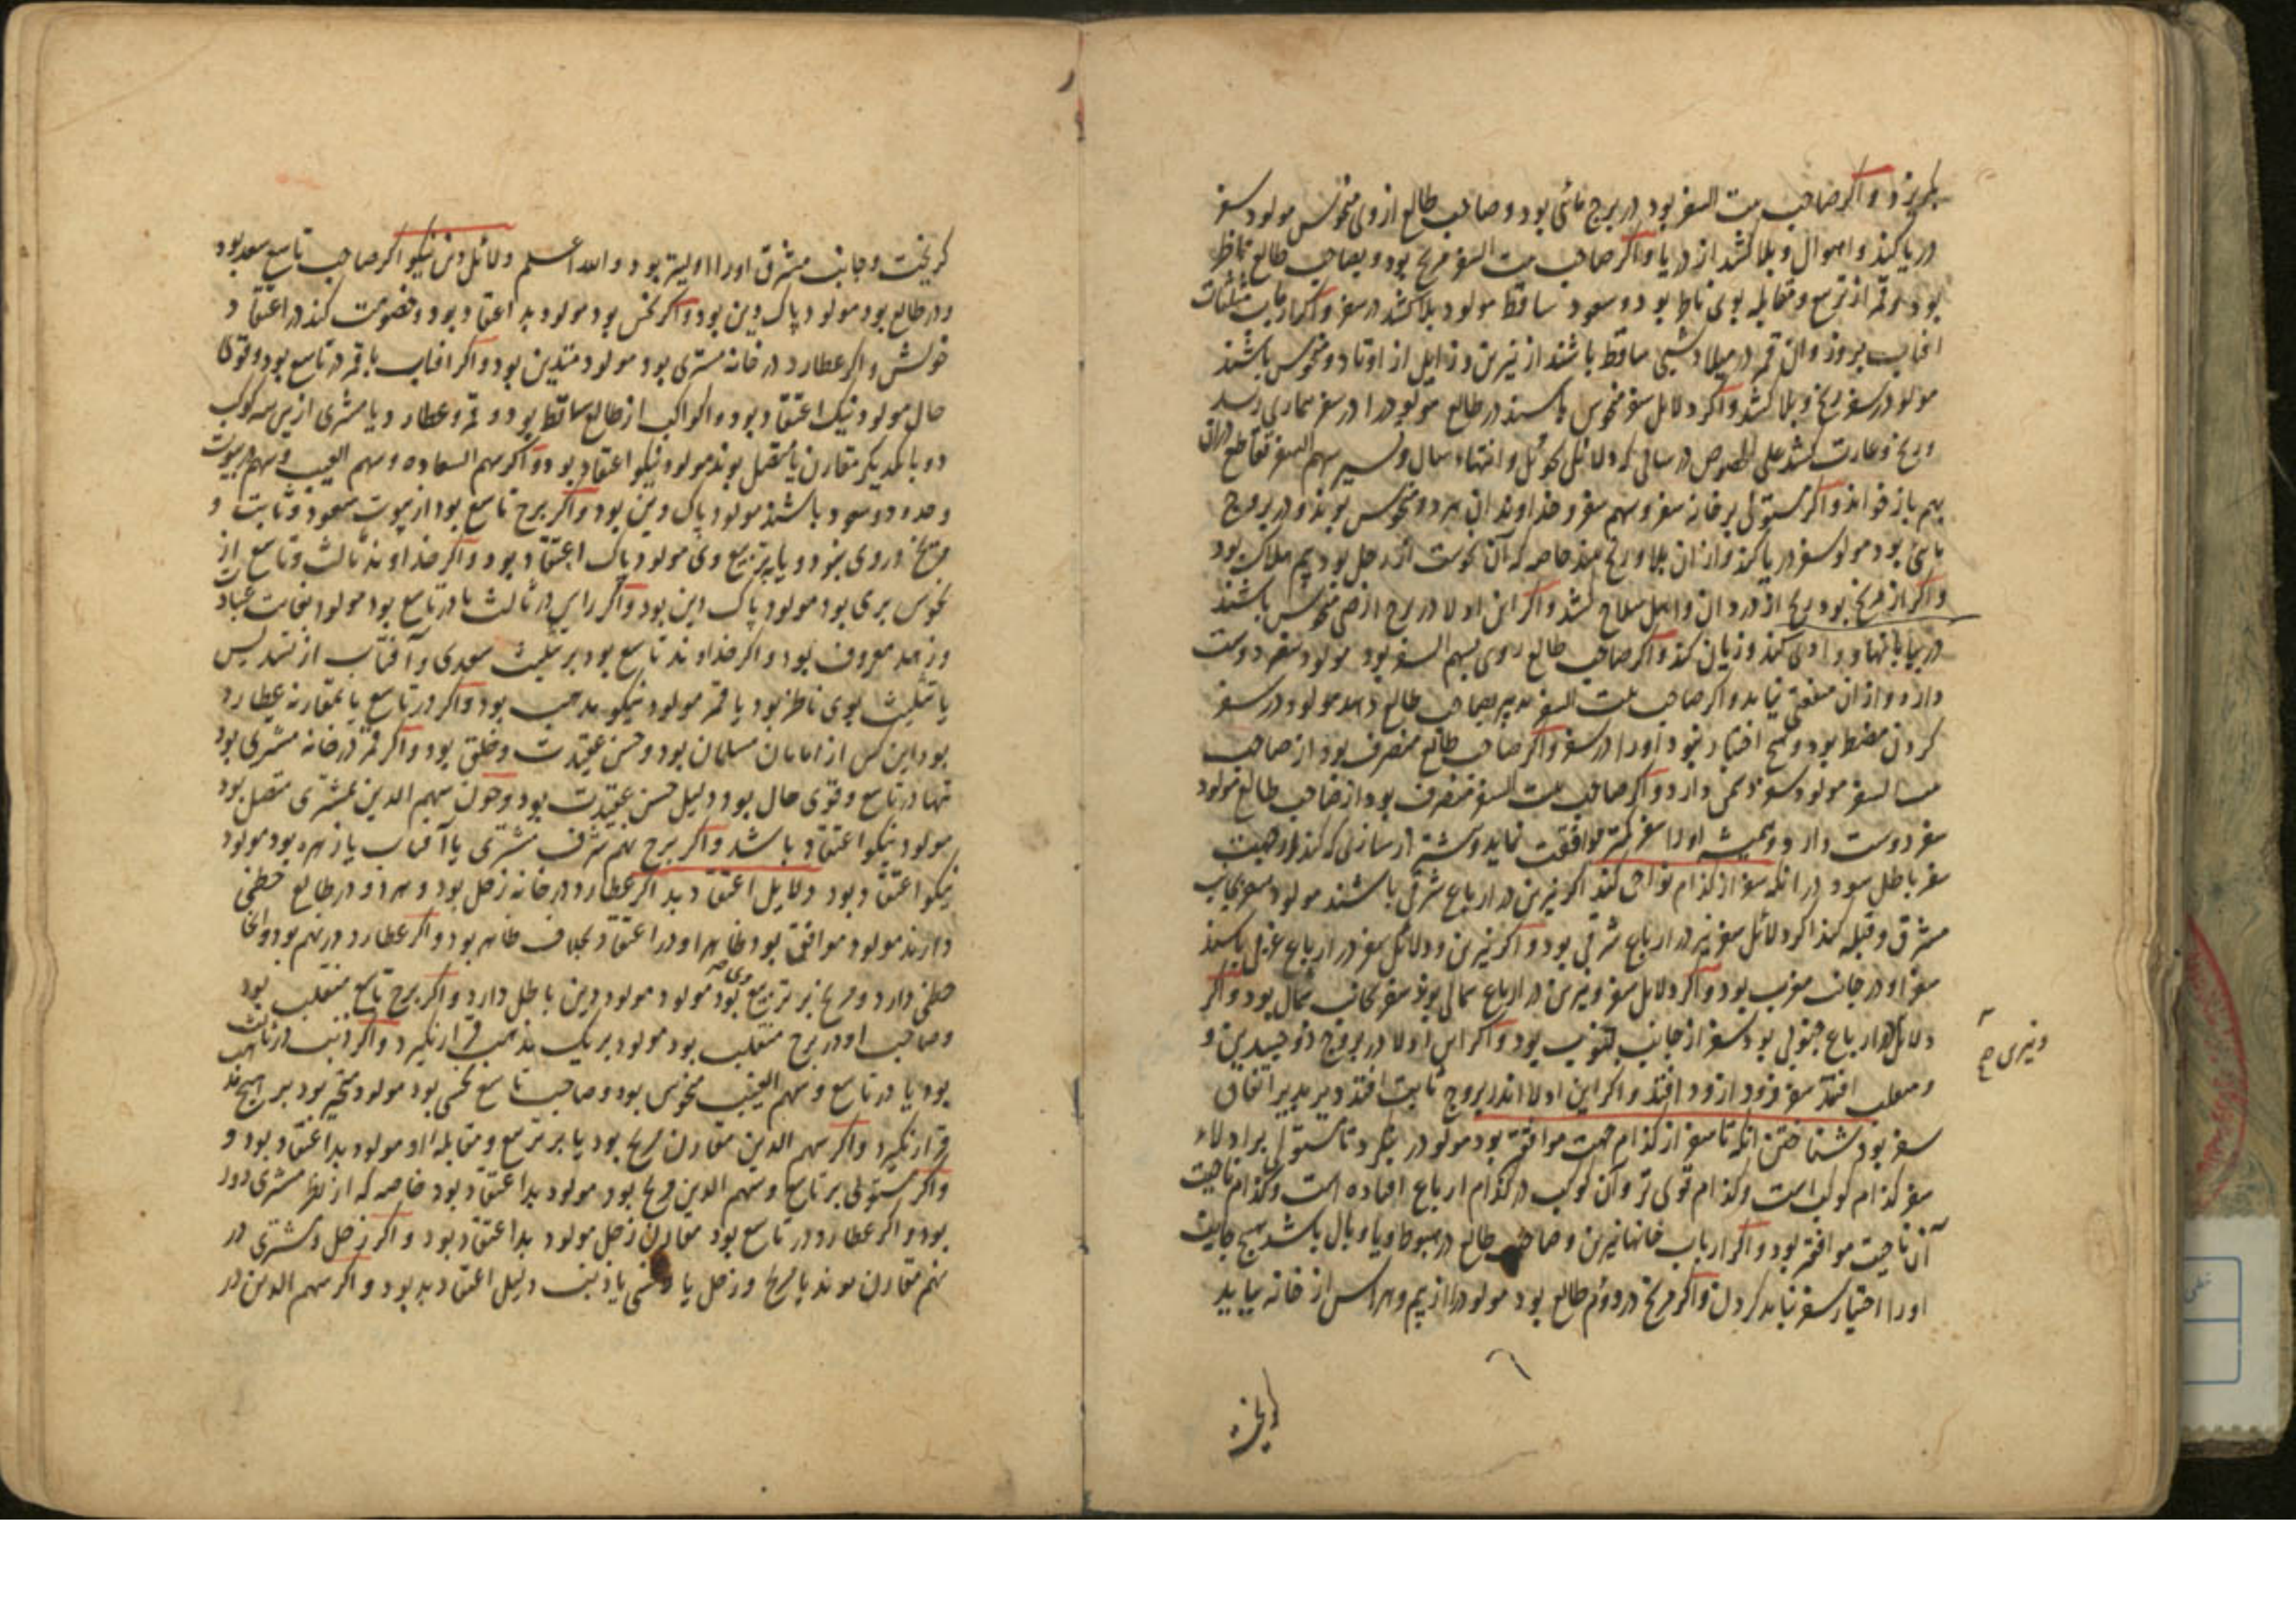 بگریزد و اگر صاحب بیت السفر بود در برج مائی بود و صاحب طالع از وی منحوس مولود سفر
دریا کند و اهوال و بلا کشد از دریا و اگر صاحب بیت السفر مریخ بود و بصاحب طالع ناظر
بود و قمر از تربیع و مقابله بوی ناظر بود و سعود ساقط مولود بلا کشد در سفر و اگر ارباب مثلثات
آفتاب بروز و آن قمر در میلاد شبی ساقط باشند از نیرین و زایل از اوتاد و منحوس باشند
مولود در سفر رنج و بلا کشد و اگر دلایل سفر منحوس باشند در طالع مولود را در سفر بیماری رسد
و رنج و غارت کشد علی الخصوص در سالی که دلایل و انتهاء سال و تسییر سهم السفر تقاطع دران
بهم باز خواند و اگر مستولی بر خانه سفر و سهم سفر و خداوند آن هر دو منحوس بوند و در بروج
مائی بود مولود سفر دریا کند و از ان بلا و رنج بیند خاصه که آن نحوست از زحل بود بیم هلاک بود
و اگر از مریخ بود رنج از دزدان و اهل سلاح کشد و اگر این ادلا در برج ارضی منحوس باشند
در بیابانها و وادی کند و زیان کند و اگر صاحب طالع بسهم السفر بود مولود سفر دوست
دارد و از ان منفعتی نیابد و اگر صاحب بیت السفر تدبیر بصاحب طالع دهد مولود در سفر
کردن مضطر بود و هیچ اختیار نبود او را در سفر و اگر صاحب طالع منصرف بود از صاحب
بیت السفر مولود سفر دشمن دارد و اگر صاحب بیت السفر منصرف بود از صاحب طالع مولود
سفر دوست دارد و همیشه او را سفر کمتر موافقت نماید و بیشتر از سازی که کند از جهت
سفر باطل شود در انکه سفر از کدام نواحی کند اگر نیرین در ارباع شرقی باشند مولود سفر بجانب
مشرق و قبله کند اگر دلائل سفر نیز در ارباع شرقی بود و اگر نیرین و دلائل سفر در ارباع غربی باشند
سفر او در جانب مغرب بود و اگر دلایل سفر و نیرین در ارباع شمالی بوند سفر بجانب شمال بود و اگر
دلائل در ارباع جنوبی بود سفر از جانب جنوب بود و اگر این ادلا در بروج ذو جسدین و
و منقلب افتد سفر زود از زود افتد و اگر این ادلا اندر بروج ثابت افتد دیر بدیر اتفاق
سفر بود شناختن انکه تا سفر از کدام جهت موافق بود مولود را بنگرد تا مستولی بر ادلاء
سفر کدام کوکب است و کدام قوی تر و آن کوکب در کدام ارباع افتاده است و کدام ناحیت
آن ناحیت موافق بود و اگر ارباب خانهاء نیرین و صاحب طالع در هبوط و یا وبال باشد هیچ جانب
او را اختیار سفر نباید کردن و اگر مریخ در دوم طالع بود مولود را از بیم و هراس از خانه بباید
گریخت و جانب مشرق او را اولیتر بود و الله اعلم دلائل دین نیکو اگر صاحب تاسع سعد بود
و در طالع بود مولود پاک دین بود و اگر نحس بود مولود بد اعتقاد بود و خصومت کند در اعتقاد
خویش و اگر عطارد در خانه مشتری بود مولود متدین بود و اگر افتاب با قمر در تاسع بود و قوی
حال مولود نیک اعتقاد بود و اگر کواکب از طالع ساقط بود و قمر و عطارد و یا مشتری ازین سه کوکب
دو با یکدیگر مقارن یا متصل بوند مولود نیکو اعتقاد بود و اگر سهم السعاده و سهم الغیب و نهم در بیوت
و حدود سعود باشند مولود پاک دین بود و اگر برج تاسع بود از بیوت سعود و ثابت و
مریخ در وی نبود و یا بتربیع وی مولود پاک اعتقاد بود و اگر خداوند ثالث و تاسع از
نحوس بری بود مولود پاک دین بود و اگر راس در ثالث یا در تاسع بود مولود بغایت عبادت
و زهد معروف بود و اگر خداوند تاسع بود بر تثلیث سعدی و آفتاب از تسدیس
یا تثلیث بوی ناظر بود یا قمر مولود نیکو مذهب بود و اگر در تاسع یا بمقارنه عطارد
بود این کس از امامان مسلمان بود و حسن عقیدت و خلق بود و اگر قمر در خانه مشتری بود
تنها در تاسع و قوی حال بود دلیل حسن عقیدت بود و چون سهم الدین بمشتری متصل بود
مولود نیکو اعتقاد باشد و اگر برج نهم شرف مشتری یا آفتاب یا زهره بود مولود
نیکو اعتقاد بود دلایل اعتقاد بد اگر عطارد در خانه زحل بود و هر دو در طالع حظی
دارند مولود موافق بود ظاهر او در اعتقاد بخلاف ظاهر بود و اگر عطارد در نهم بود و انجا
حظی دارد و مریخ بر تربیع وی بود مولود دین باطل دارد و اگر برج تاسع منقلب بود
و صاحب او در برج منقلب بود مولود بر یک مذهب قرار نگیرد و اگر ذنب در ثالث
بود یا در تاسع و سهم الغیب منحوس بود و صاحب تاسع نحس بود مولود متحیر بود بر هیچ مذهب
قرار نگیرد و اگر سهم الدین مقارن مریخ بود یا بر تربیع و مقابله او مولود بد اعتقاد بود و
و اگر مستولی بر تاسع و سهم الدین مریخ بود مولود بد اعتقاد بود خاصه که از نظر مشتری دور
بود و اگر عطارد در تاسع بود مقارن زحل مولود بد اعتقاد بود و اگر زحل و مشتری در
نهم مقارن بوند با مریخ و زحل یا ذنب دلیل اعتقاد بد بود و اگر سهم الدین در